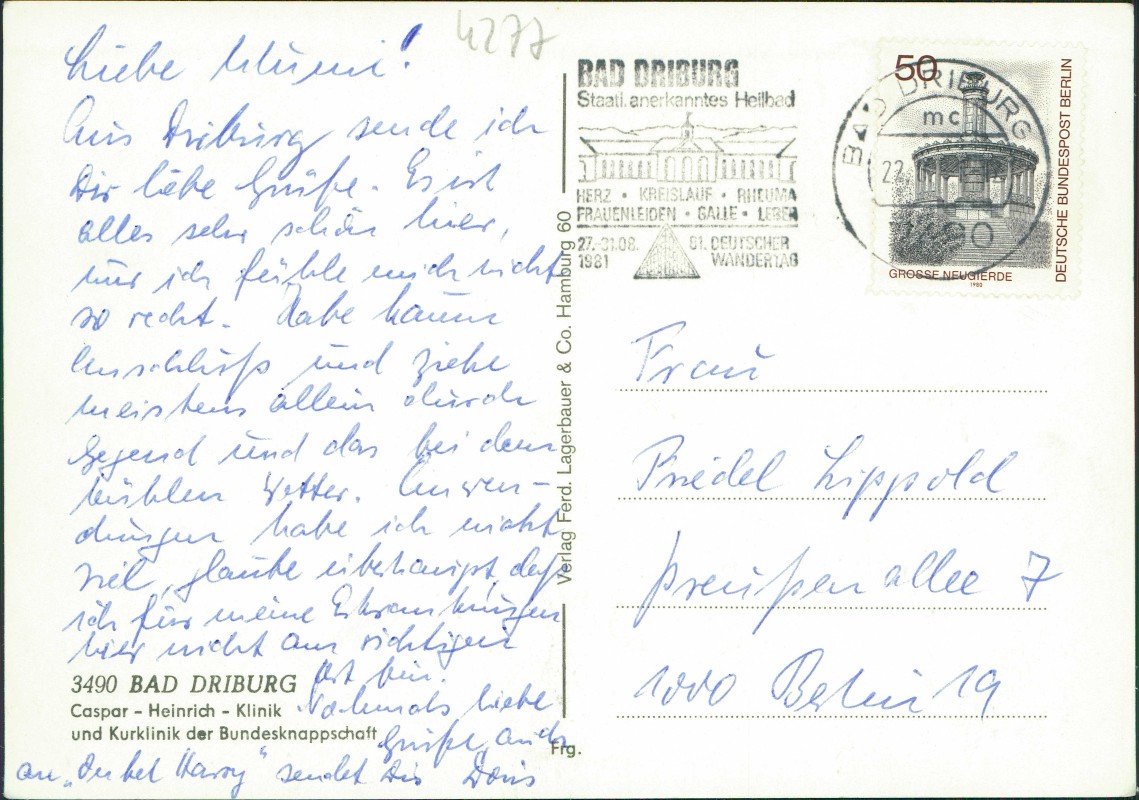 4277
Liebe Mumi!
Aus Driburg sende ich
Dir liebe Grüße. Es ist
alles sehr schön hier,
nur ich fühle mich nicht
so recht. Habe kaum
Anschluß und ziehe
meistens allein durch
Gegend und das bei dem
kühlen Wetter. Anwen-
dungen habe ich nicht
viel, glaube überhaupt, daß
ich für meine Erkrankungen
hier nicht am richtigen
Ort bin.
Nochmals liebe
Grüße, auch
an "Onkel Harry" sendet Dir Doris
3490 BAD DRIBURG
Caspar - Heinrich - Klinik
und Kurklinik der Bundesknappschaft
Frg.
Verlag Ferd. Lagerbauer & Co. Hamburg 60
BAD DRIBURG
Staatl. anerkanntes Heilbad
HERZ · KREISLAUF · RHEUMA
FRAUENLEIDEN · GALLE · LEBER
27.-31.08. 81. DEUTSCHER
1981 WANDERTAG
BAD DRIBURG
mc
22
3490
50
DEUTSCHE BUNDESPOST BERLIN
GROSSE NEUGIERDE
1980
Frau
Friedel Lippold
Preußenallee 7
1000 Berlin 19